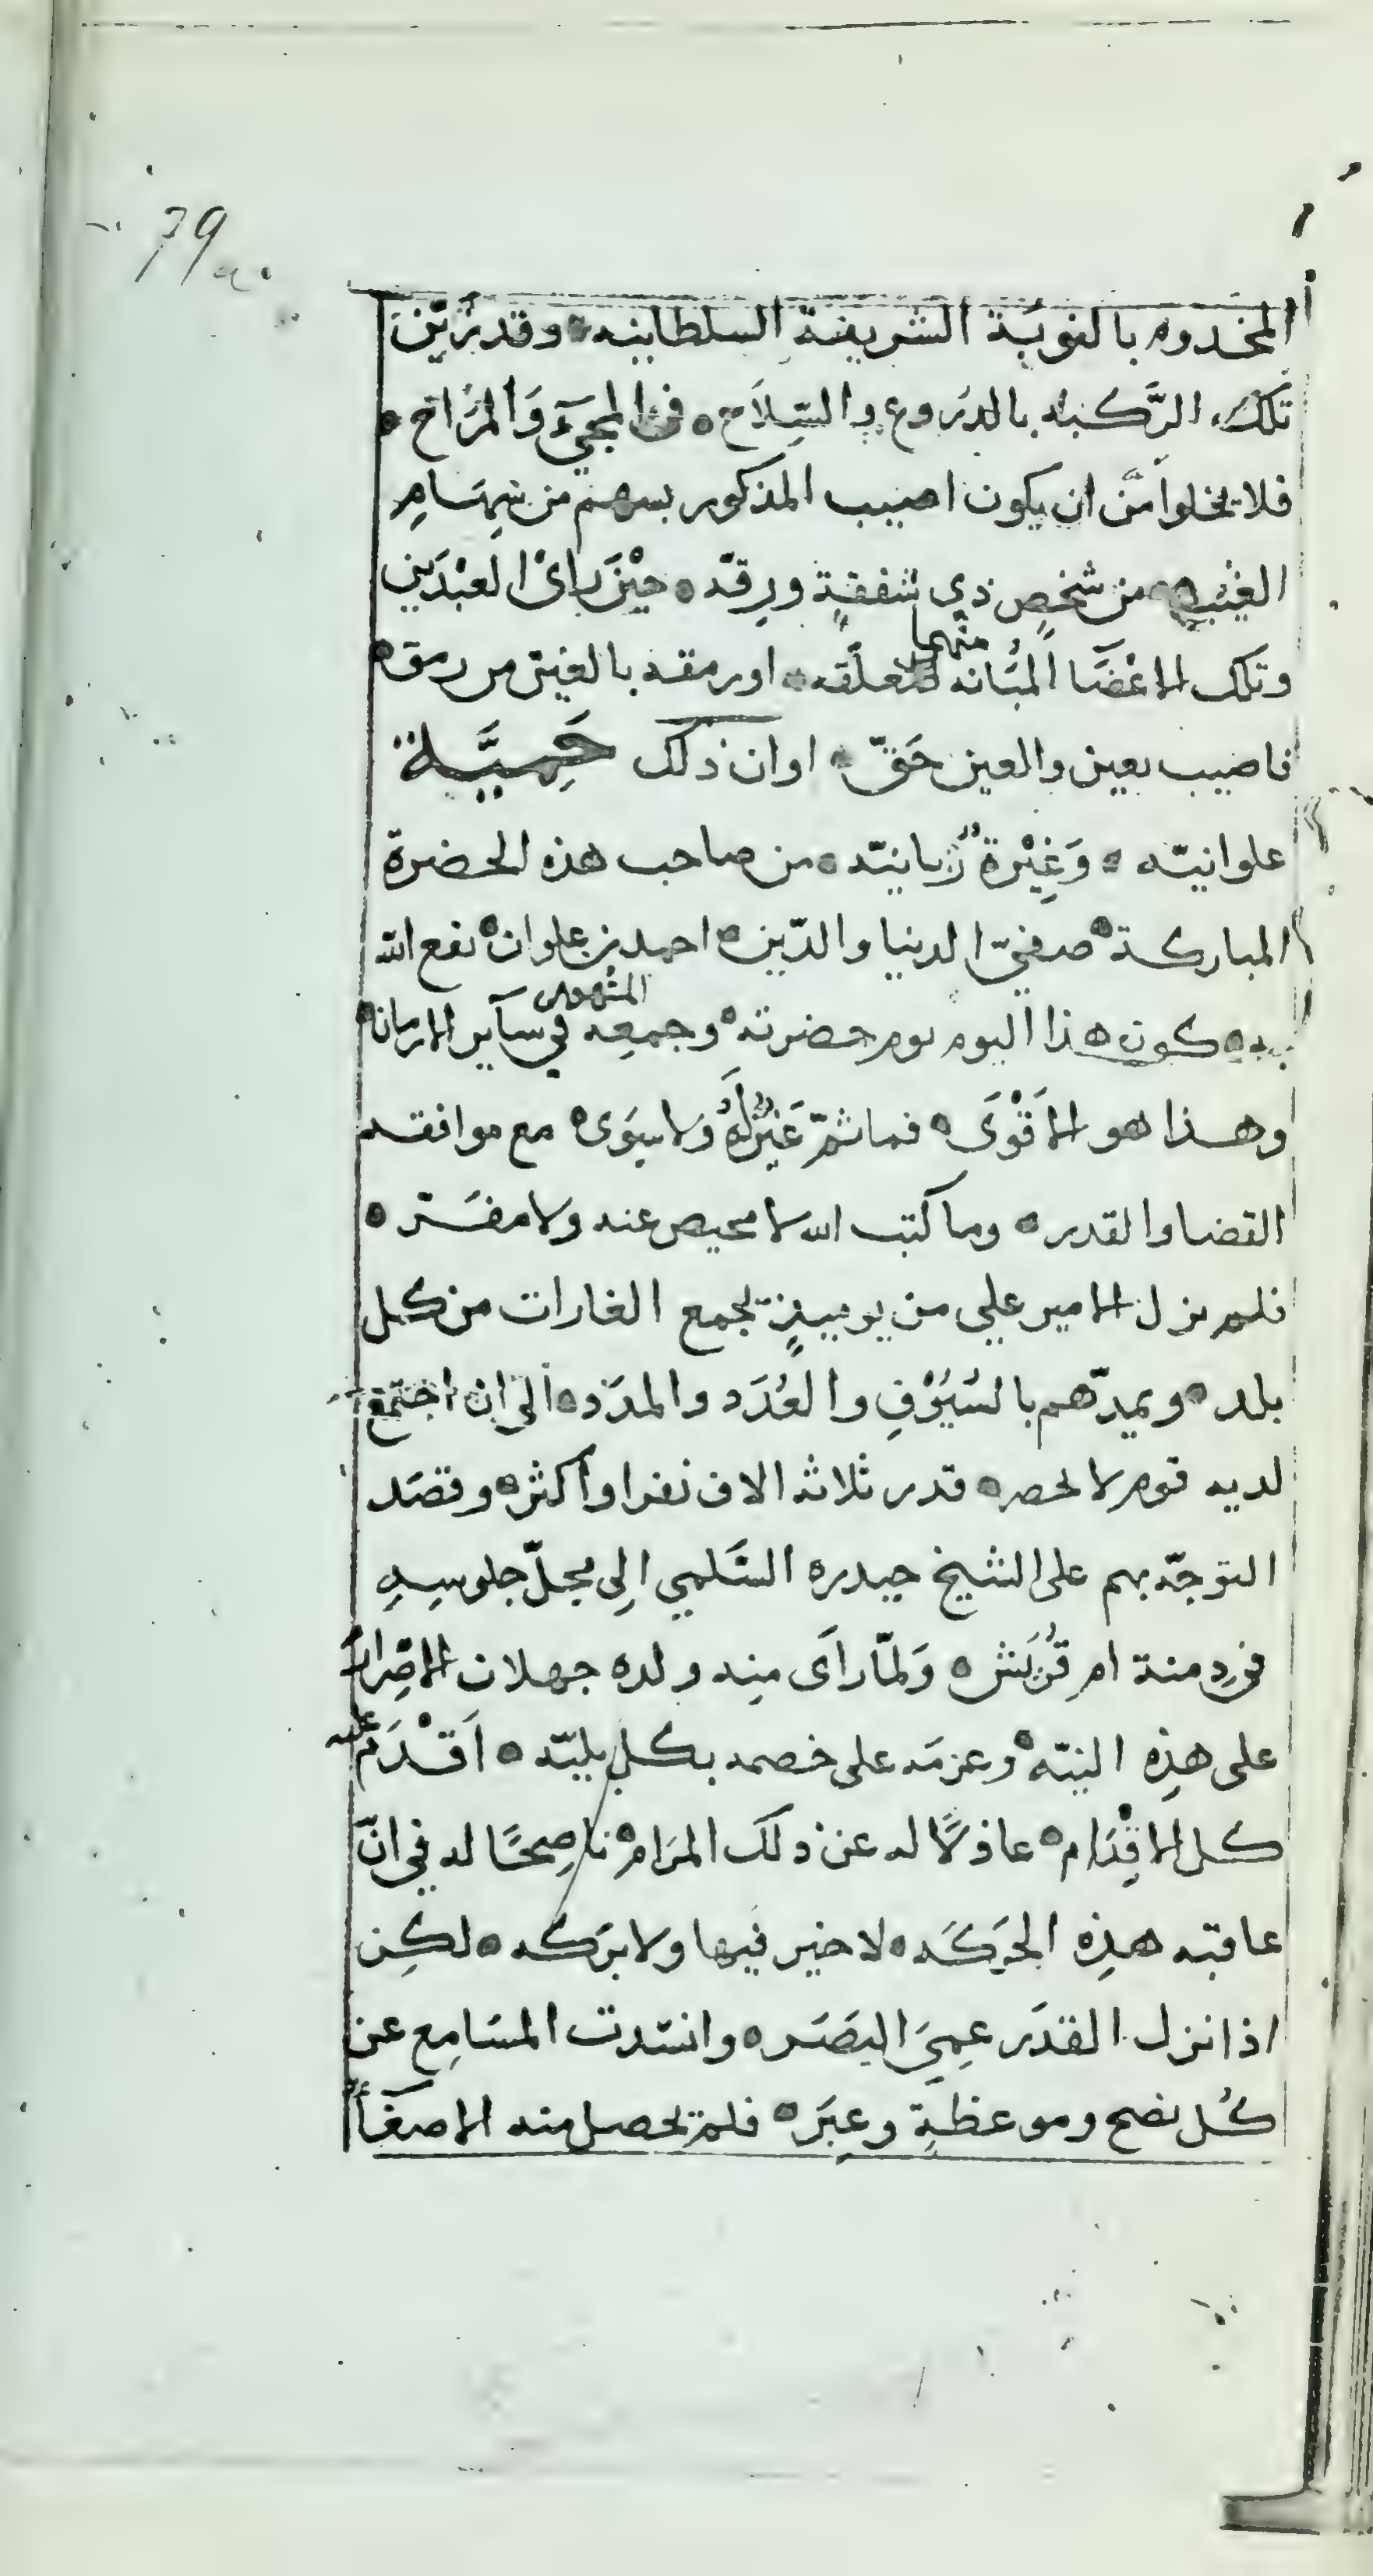 79a
المخدومه بالنوبَة الشريفة السلطانيه ه وقد تزيّن
تلك الرَّكبه بالدروع والسِّلاَح ه في المجيَءِ وَالمرَاح ه
فلا يخلوا مّن ان يكون اصيب المذكور بسهم من سِهَامِ
الغيب ه من شخصٍ ذي شفقةٍ ورِقّه ه حيْنَ راىْ العبْدَين
وتلك الاعْضَا المُبَانه منهما معلَّقه ه او رمقه بالعين من رمق ه
فاصيب بعين والعين حَقّ ه او ان ذلك حَمِيَّة
علوانيّه ه وَغِيْرةٌ ربانيّه ه من صاحب هذه الحضرة
المباركة ه صفيّ الدنيا والدّين ه احمد بن علوان ه نفع الله
به ه كون هذا اليوم يوم حضرته ه وجمعِه المشهور في سآير الازمان ه
وهذا هو الاَقْوَى ه فما ثمّ غَيْرُهُ ولا سِوَى ه مع موافقه
القضا والقدر ه وما كتب الله لا محيص عنه ولا مفَـرّ ه
فلم يزل الامير علي من يوميذٍ يجمع الغارات من كل
بلد ه ويمدّهم بالسُيُوْفِ والعُدَد والمدَد ه الى ان اجتمع
لديه قوم لا تحصر ه قدر ثلاثه الاف نفر او أكثر ه وقصَد
التوجّه بهم على الشيخ حيدره السَّلمي الِى محلّ جلوسِهِ
في دِمنة ام قُرَيش ه وَلمّا راَى مِنه ولده جهلان الاصِرارَ
على هذِه النيّه ه وعزمَه على خصمه بكل بليّه ه اَقْدَم عليه
كل الاقْدَام ه عاذلاً له عن ذلك المرَام ه ناصِحًا له في انّ
عاقبه هذِه الحرَكَه ه لا خير فيها ولا برَكه ه لكِن
اذا نزل القدَر عمِيَ البصَر ه وانسّدت المسَامِع عن
كُل نصح وموعظةٍ وعِبَر ه فلم يحصل منه الاصغَآءُ